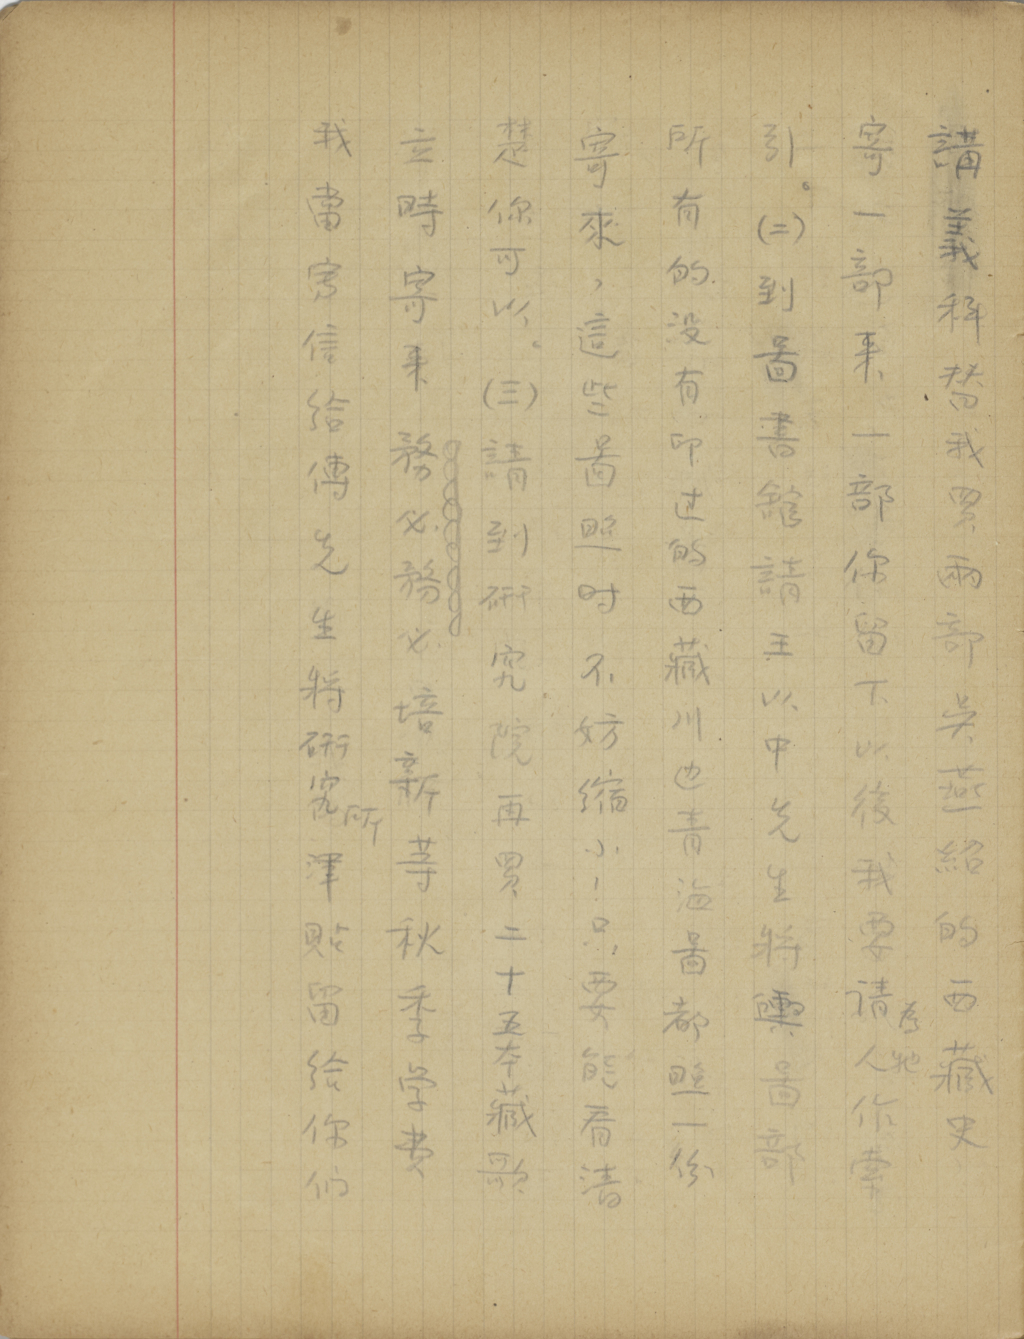 講義科替我買兩部吳燕紹的西藏史
寄一部来一部你留下以後我要请人为牠作索
引。(二)到圖書館請王以中先生將輿圖部
所有的没有印过的西藏川边青海圖都照一份
寄來，這些圖照时不妨缩小！只要能看清
楚你可以。(三)請到研究院再買二十五本藏歌
立時寄来務必務必培新等秋季学费
我當寫信給傅先生將研究所津貼留给你们